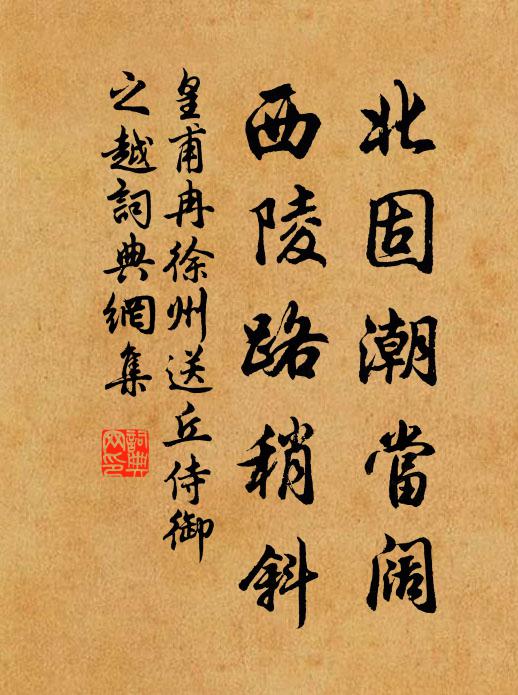 北固潮當阔
西陵路稍斜
皇甫冉徐州送丘侍御
之越詞典網集
詞典
网印